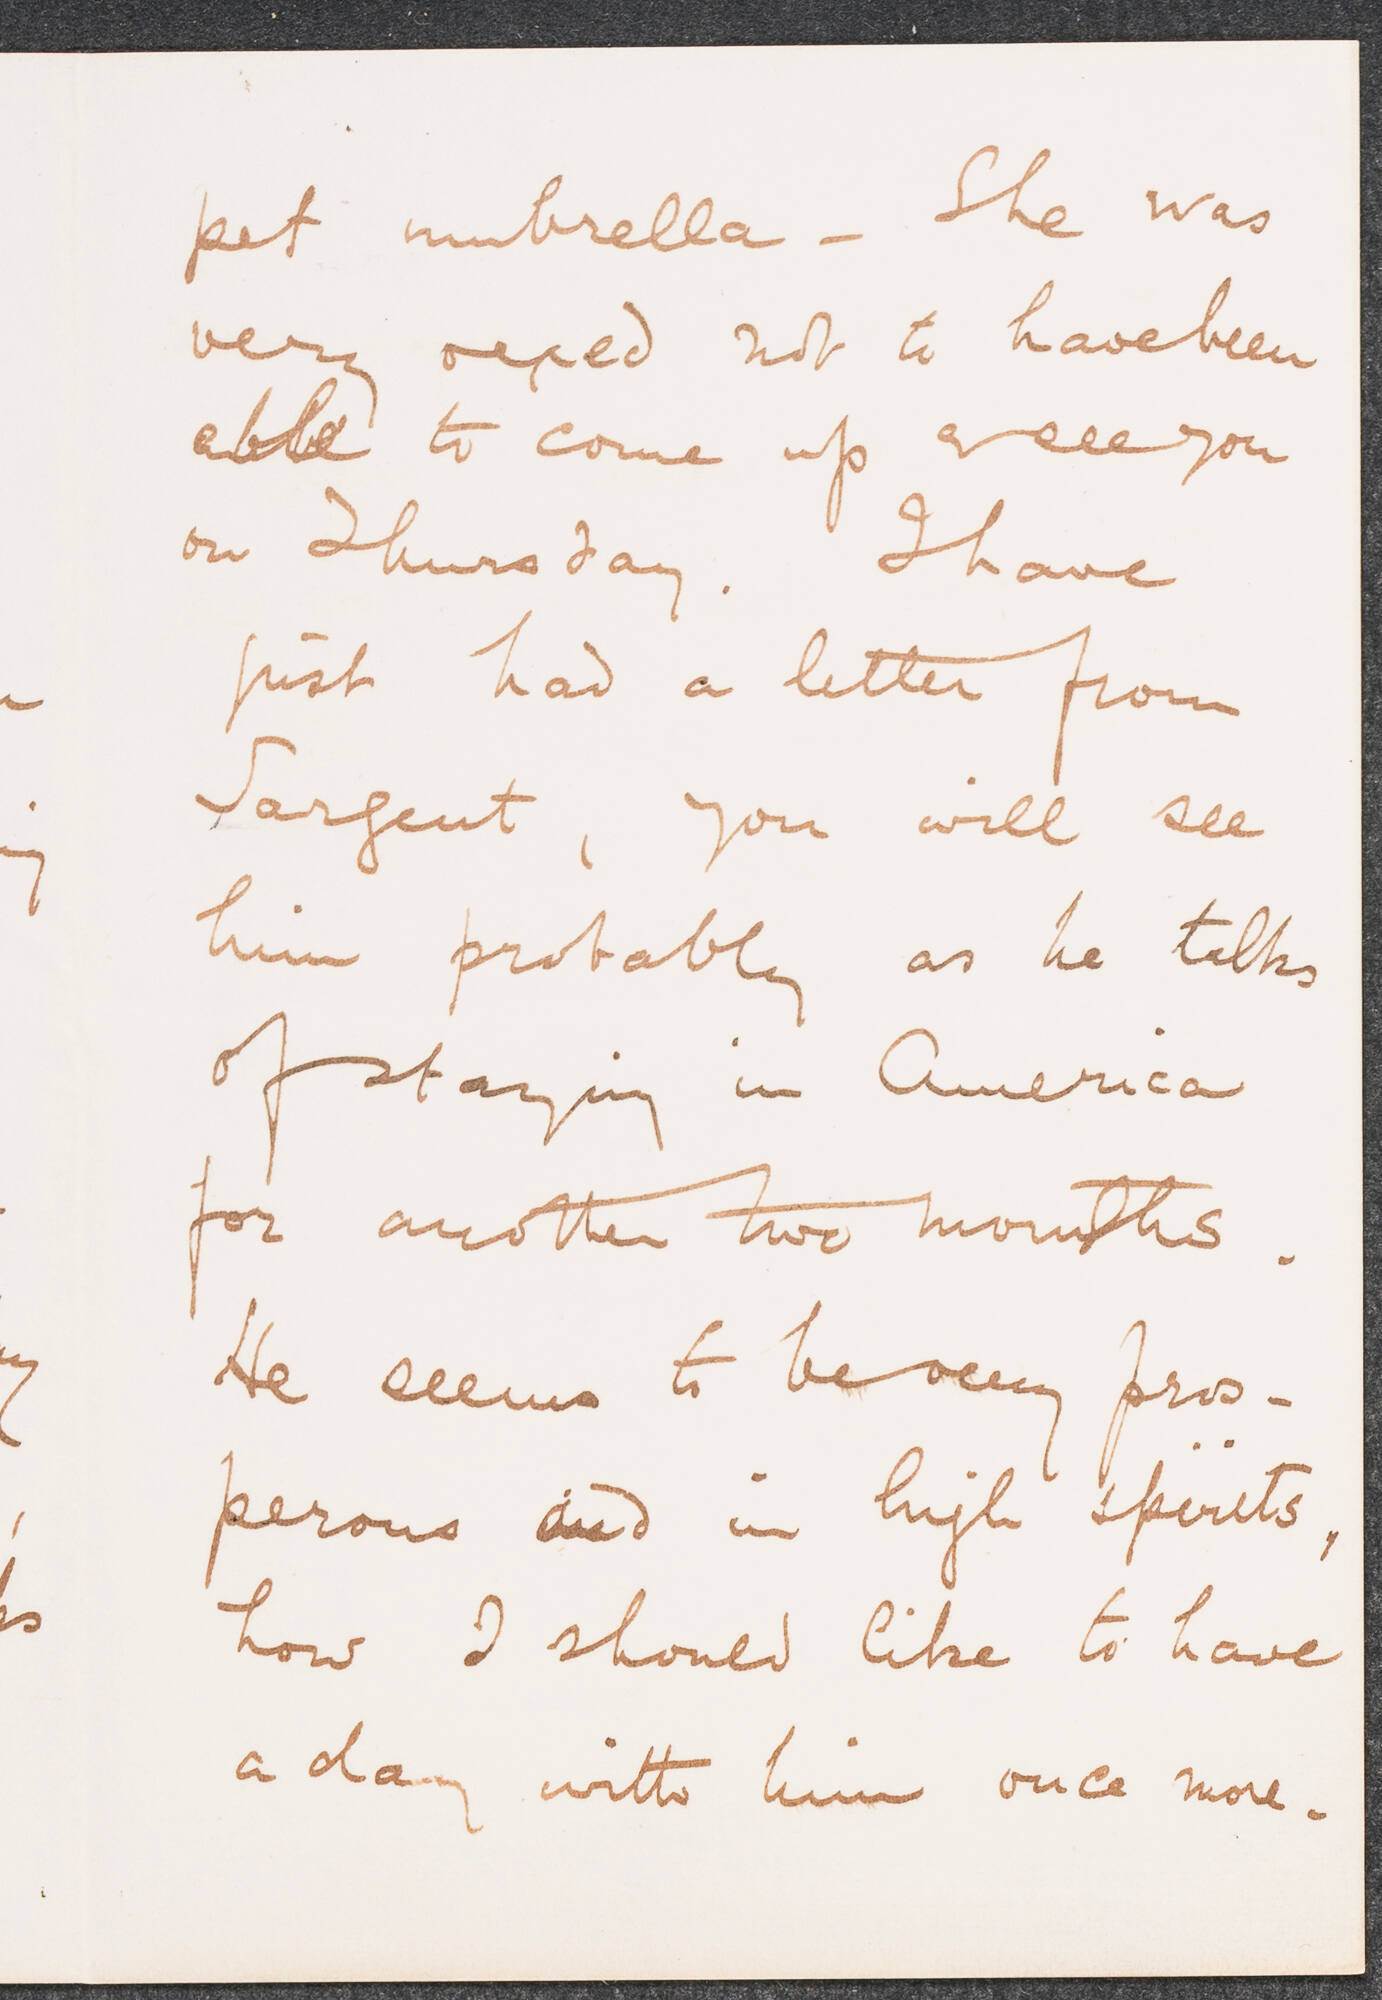 pet umbrella – She was
very vexed not to have been
able to come up & see you
on Thursday. I have
just had a letter from
Sargent, you will see
him probably as he talks
of staying in America
for another two months.
He seems to be very pros-
perous and in high spirits,
how I should like to have
a day with him once more.